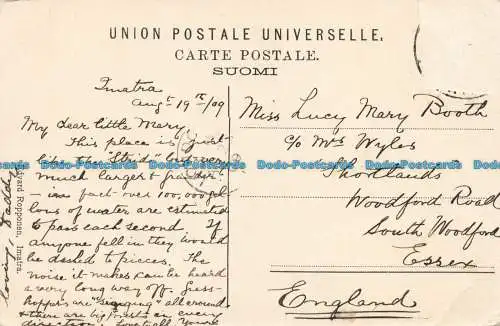 UNION POSTALE UNIVERSELLE.
CARTE POSTALE.
SUOMI
Imatra
Augt 19th/09
My dear little Mary
This place is just
like the "Strids" but very
much larger & grander
- in fact over 100,000 gal
lons of water are estimated
to pass each second. If
anyone fell in they would
be dashed to pieces. The
noise it makes can be heard
a very long way off. Grass-
hoppers are "singing" all around
& there are big forests in every
direction. Yours
loving, Daddy
Miss Lucy Mary Booth
c/o Mrs Wyles
Shortlands
Woodford Road
South Woodford
Essex
England
Roponen, Imatra.
Dodo-Postcards.com